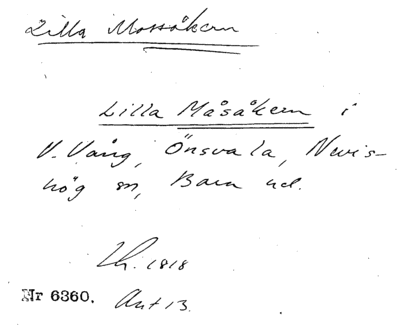 Lilla Mossåkern
Lilla Måsåkern i
V. Vång, Önsvala, Nevis-
hög sn, Bara hd.
Lh. 1818
Nr 6360. Ant 13.